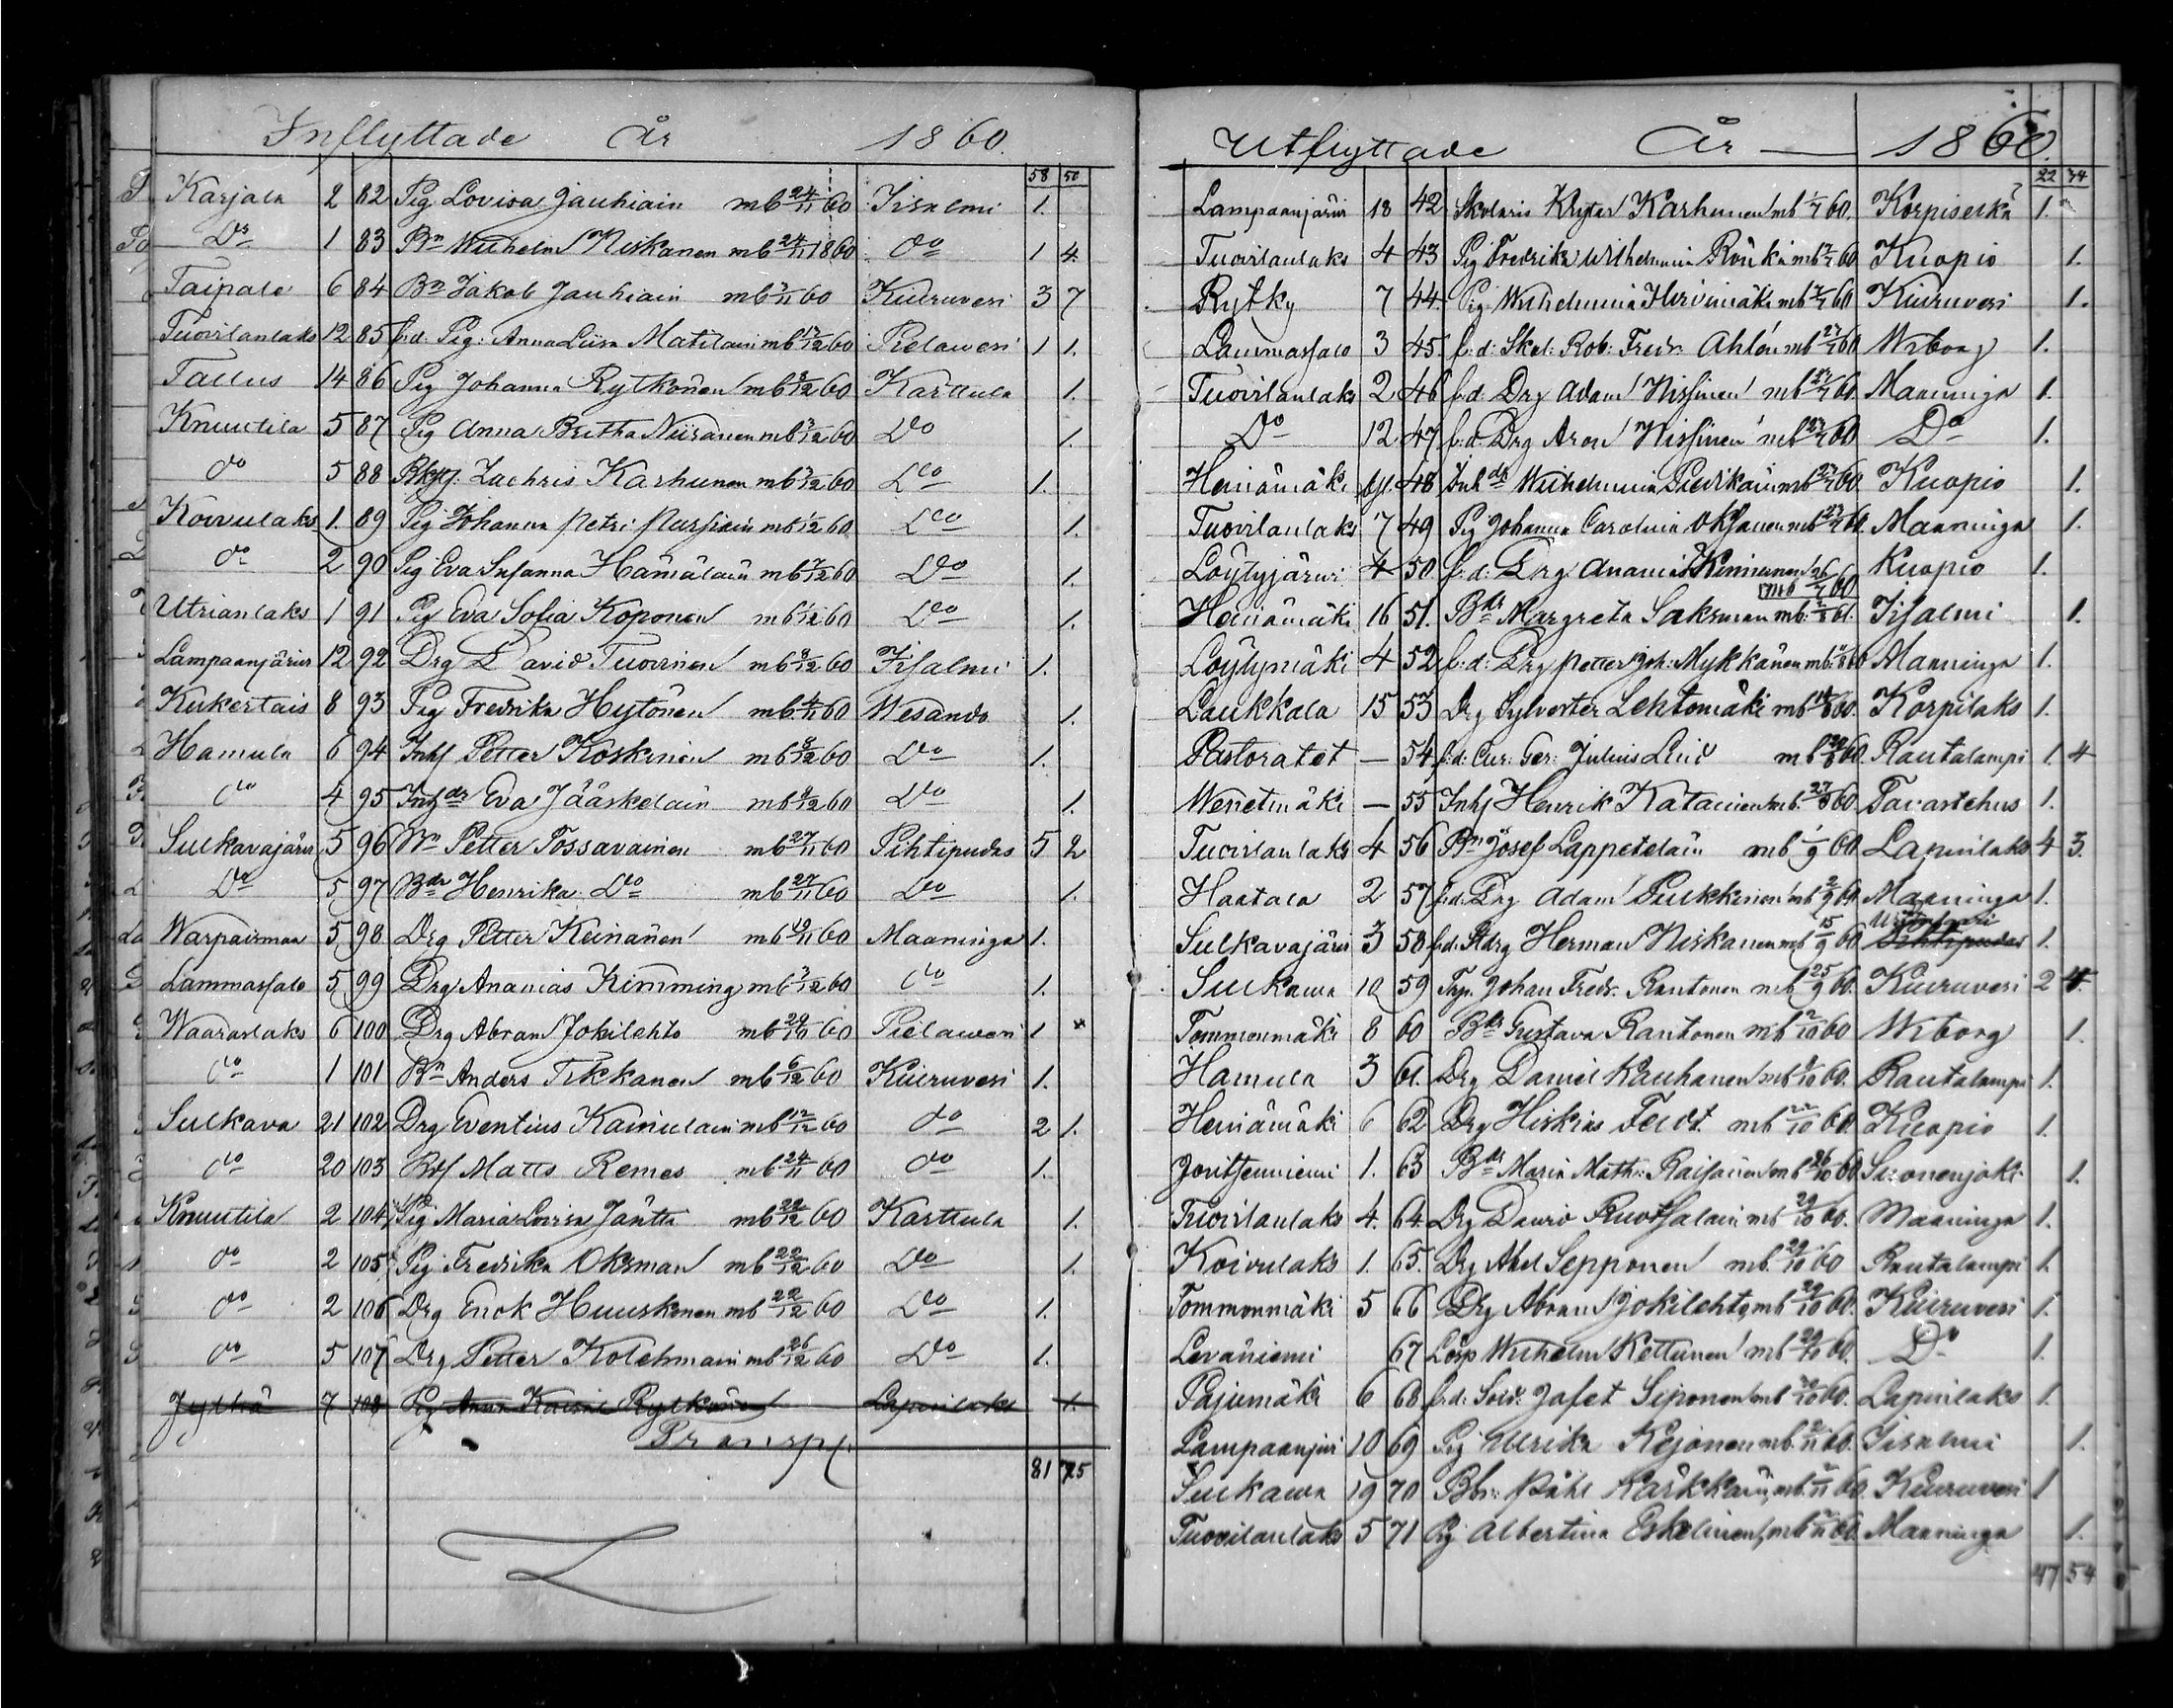 Inflyttade År 1860.
58 50
Karjala 2 82 Pig Lovisa Jauhiain mb 24/11 60 Iisalmi 1.
Do 1 83 Bn Wilhelm Niskanen mb 24/11 1860 do 1 4.
Taipale 6 84 Bn Jakob Jauhiain mb 60 Kiuruvesi 3 7
Tuovilanlaks 12 85 f:d: Pig: Anna Liisa Matilain mb 60 Pielavesi 1 1.
Tallus 14 86 Pig Johanna Rytkönen mb 60 Karttula 1.
Knuutila 5 87 Pig Anna Britha Niiranen mb 60 Do 1.
do 5 88 Zachris Karhunen mb 60 Do 1.
Koivulaks 1. 89 Pig Johanna Petri: Pursiain mb 60 Do 1.
do 2 90 Pig Eva Susanna Hämäläin mb 60 Do 1.
Utrianlaks 1 91 Pig Eva Sofia Koponen mb 60 Do 1.
Lampaanjärvi 12 92 Drg David Tuovinen mb 60 Iisalmi 1.
Kukertais 8 93 Pig Fredrika Hytönen mb 60 Wesando 1.
Hamula 6 94 Inhs Petter Koskinen mb 60 Do 1.
do 4 95 Inhdr Eva Jääskeläin mb 60 Do 1.
Sulkavajärvi 5 96 Bn Petter Tossavainen mb 27/11 60 Pihtipudas 5 2
Do 5 97 Bdr Henrika Do mb 27/11 60 Do 1.
Warpaismaa 5 98 Drg Petter Keinänen mb 60 Maaninga 1.
Lammassalo 5 99 Drg Ananias Kimming mb 60 do 1.
Waaraslaks 6 100 Drg Abram Jokilehto mb 29/10 60 Pielavesi 1
do 1 101 Bn Anders Tikkanen mb 6/12 60 Kiuruvesi 1.
Sulkava 21 102 Drg Eventius Kainulain mb 12/12 60 do 2 1.
do 20 103 Matts Remes mb 24/11 60 do 1.
Knuutila 2 104 Pig Maria Lovisa Jäntti mb 22/12 60 Karttula 1.
do 2 105 Pig Fredrika Oksman mb 22/12 60 Do 1.
do 2 106 Drg Enok Huuskonen mb 22/12 60 Do 1.
do 5 107 Drg Petter Kolehmain mb 26/12 60 Do 1.
Jylhä 7 108 Pig Anna Rytkönen Lapinlaks 1.
Transp.
81 75
Utflyttade År 1860.
22 34
Lampaanjärvi 18 42 Skolaris Karhunen mb 60. Korpiselkä 1.
Tuovilanlaks 4 43 Pig Fredrika Wilhelmina Rönkä mb 60 Kuopio 1.
Rytky 7 44. Pig Wilhelmina Hirvimäki mb 60 Kiuruvesi 1.
Lammassalo 3 45 f:d: Skol: Rob: Fredr: Ahlén mb 60 Wiborg 1.
Tuovilanlaks 2 46 f:d: Drg Adam Nissinen mb 60. Maaninga 1.
Do 12 47 f:d: Drg Aron Nissinen mb 60 Do 1.
Heinämäki 48 Inhdr Wilhelmina Piedikäin mb 60 Kuopio 1.
Tuovilanlaks 7 49 Pig Johanna Carolina Oksanen mb 60. Maaninga 1.
Löytyjärvi 4 50 f:d: Drg Ananias Kinnunen mb 60 Kuopio 1.
Heinämäki 16 51. Bdr Margreta Saksman mb. 60. Iisalmi 1.
Löytymäki 4 52 f:d: Drg Petter Joh: Mykkänen mb 60 Maaninga 1.
Laukkala 15 53 Drg Sylvester Lehtomäki mb 60. Korpilaks 1.
Pastoratet — 54 f:d: Cur: Ger: Julius Lind mb 60. Rautalampi 1 4
Wenetmäki — 55 Inhs Henrik Katainen mb. 27/8 60 Tavastehus 1.
Tuovilanlaks 4 56 Bn Josef Lappeteläin mb 1/9 60 Lapinlaks 4 3.
Haatala 2 57 f:d: Drg Adam Pulkkinen mb 2/9 60. Maaninga 1.
Sulkavajärvi 3 58 f:d: Herman Niskanen mb 15/9 60 Pihtipudas 1.
Sulkawa 10 59 Johan Fredr. Rautonen mb 25/9 60. Kiuruvesi 2 4.
Tommonmäki 8 60 Bdr Gustava Rautonen mb 2/10 60 Wiborg 1.
Hamula 3 61. Drg Daniel Kauhanen mb 60. Rautalampi 1.
Heinämäki 6 62 Drg Hiskias Feldt. mb 60. Kuopio 1.
Jouttenniemi 1. 63 Bdr Maria Math: Raisanen mb 26/10 60 Suonenjoki 1.
Tuovilanlaks 4. 64. Drg David Ruotsalain mb 29/10 60. Maaninga 1.
Koivulaks 1. 65. Drg Abel Sepponen mb. 29/10 60 Rautalampi 1.
Tommonmäki 5 66 Drg Abram Jokilehto mb 29/10 60. Kiuruvesi 1.
Leväniemi 67 Wilhelm Kettunen mb 29/10 60. Do 1.
Pajumäki 6 68 f:d: Sold: Jafet Siponen mb 60. Lapinlaks 1.
Lampaanjärvi 10 69 Pig Ulrika Kejonen mb. 60. Iisalmi 1.
Sulkawa 19 70 Påhl Kärkkäin mb. 60. Kiuruvesi 1
Tuovilanlaks 5 71 Pig Albertina Eskelinen mb 60. Maaninga 1.
47 54